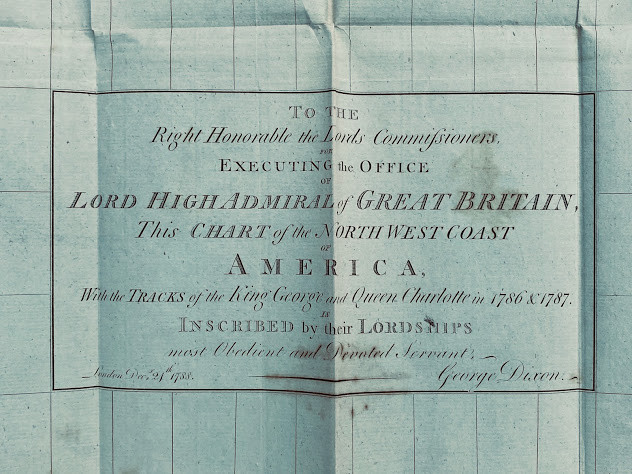 TO THE
Right Honorable the Lords Commiſsioners,
FOR
EXECUTING the OFFICE
OF
LORD HIGH ADMIRAL of GREAT BRITAIN,
This CHART of the NORTH WEST COAST
OF
AMERICA,
With the TRACKS of the King George and Queen Charlotte in 1786 & 1787.
IS
INSCRIBED by their LORDSHIPS
most Obedient and Devoted Servant,
London Decr. 24th 1788.
George Dixon.